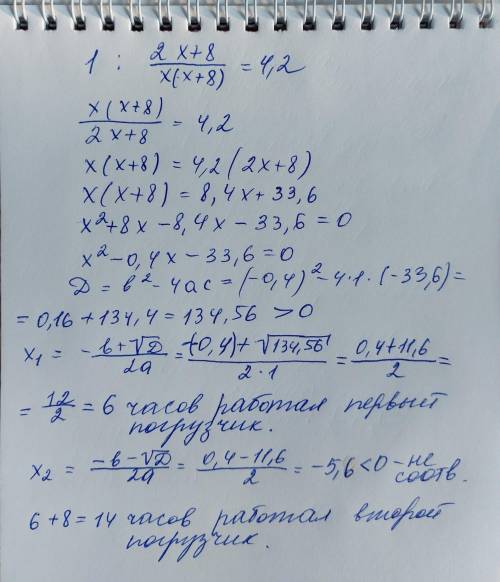 1 : (2x+8)/(x(x+8)) = 4,2
x(x+8)/(2x+8) = 4,2
x(x+8) = 4,2(2x+8)
x(x+8) = 8,4x+33,6
x²+8x-8,4x-33,6=0
x²-0,4x-33,6=0
Д = в²-4ас = (-0,4)²-4·1·(-33,6)=
= 0,16+134,4=134,56 >0
x₁ = (-в+√Д)/2а = (-(0,4)+√134,56)/(2·1) = (0,4+11,6)/2 =
= 12/2 = 6 часов работал первый
погрузчик.
x₂ = (-в-√Д)/2а = (0,4-11,6)/2 = -5,6<0 - не
соотв.
6+8=14 часов работал второй
погрузчик.